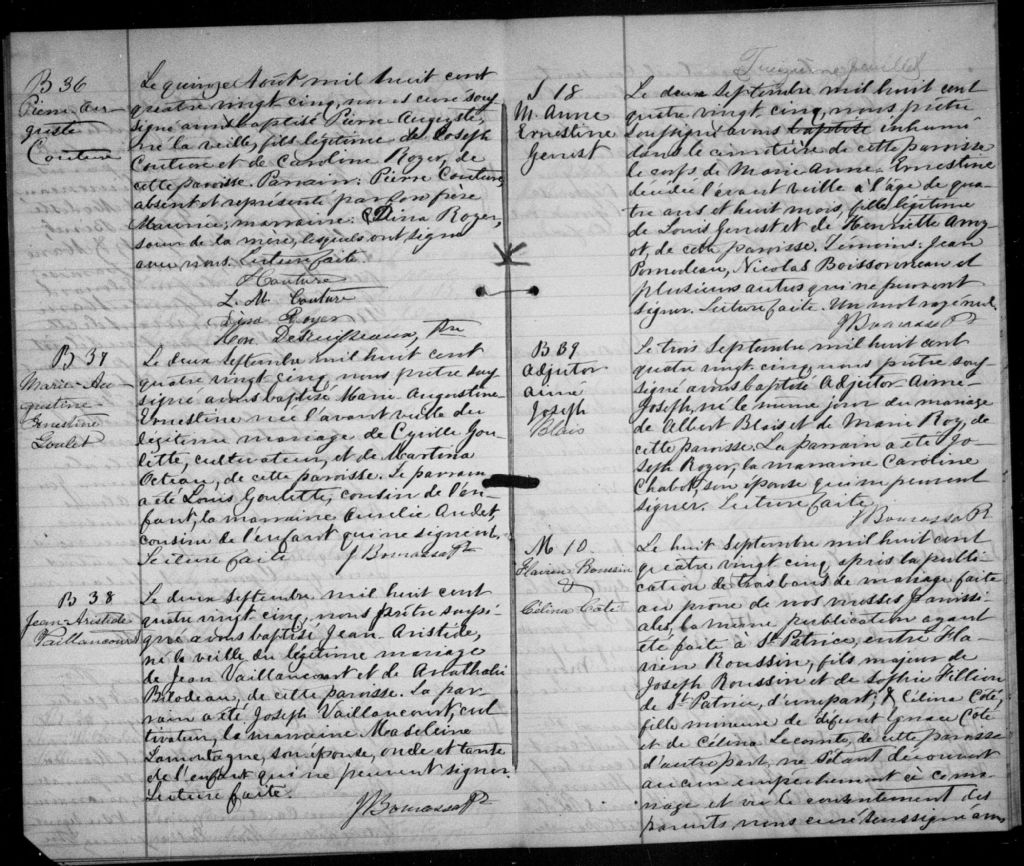 B 36
Pierre Au-
guste
Couture
Le quinze Août mil huit cent
quatre vingt cinq, nous curé sous
signé avons baptisé Pierre Auguste,
né la veille, fils légitime de Joseph
Couture et de Caroline Royer, de
cette paroisse. Parrain: Pierre Couture,
absent et représenté par son frère
Maurice, marraine: Dina Royer,
soeur de la mère, lesquels ont signé
avec nous. Lecture faite
J Couture
L. M. Couture
Dina Royer
B 37
Marie-Au-
gustine-
Ernestine
Goulet
Le deux Septembre mil huit cent
quatre vingt cinq, nous prêtre sous
signé avons baptisé Marie Augustine
Ernestine née l'avant veille du
légitime mariage de Cyrille Gou-
lette, cultivateur, et de Martina
de cette paroisse. Le parrain
a été Louis Goulette, cousin de l'en-
fant, la marraine Aurelie Audet,
cousine de l'enfant qui ne signent.
Lecture faite J Bourassa Ptr
B 38
Jean-Aristide
Vaillancourt
Le deux Septembre mil huit cent
quatre vingt cinq, nous prêtre soussi-
gné avons baptisé Jean-Aristide,
né la veille du légitime mariage
de Jean Vaillancourt et de
Bilodeau, de cette paroisse. La par-
rain a été Joseph Vaillancourt, cul
tivateur, la marraine Madeleine
Lamontagne, son épouse, oncle et tante
de l'enfant qui ne peuvent signer
Lecture faite.
J Bourassa Ptr
S 18
M. Anne
Ernestine
Genest
Le deux Septembre mil huit cent
quatre vingt cinq, nous prêtre
soussigné avons baptisé inhumé
dans le cimetière de cette paroisse
le corps de Marie Anne-Ernestine
décédée l'avant veille à l'âge de qua-
tre ans et huit mois, fille légitime
de Louis Genest et de Henriette Amy-
ot, de cette paroisse. Témoins: Jean
Pomerleau, Nicolas Boissonneau et
plusieurs autres qui ne peuvent
signer. Lecture faite. Un mot rayé nul.
J Bourassa Ptr
B 39
Adjutor
Aimé
Joseph
Blais
Le trois Septembre mil huit cent
quatre vingt cinq nous prêtre sous
signé avons baptisé Adjutor Aimé
Joseph, né le même jour du mariage
de Albert Blais et de Marie Roy, de
cette paroisse. La parrain a été Jo-
seph Royer, la marraine Caroline
Chabot, son épouse qui ne peuvent
signer. Lecture faite
J Bourassa Ptr
M 10.
Flavien Roussin
&
Célina Côté
Le huit Septembre mil huit cent
quatre vingt cinq, après la publi-
cation de trois bans de mariage faite
au prône de nos messes paroissi-
ales, la même publication ayant
été faite à St Patrice, entre Fla-
vien Roussin, fils majeur de
Joseph Roussin et de Sophie Fillion
de St Patrice, d'une part; & Célina Côté,
fille mineure de défunt Ignace Côté
et de Célina Lecomte, de cette paroisse
d'autre part, ne s'étant découvert
aucun empêchement à ce ma-
riage et vu le consentement des
parents nous curé soussigné avons